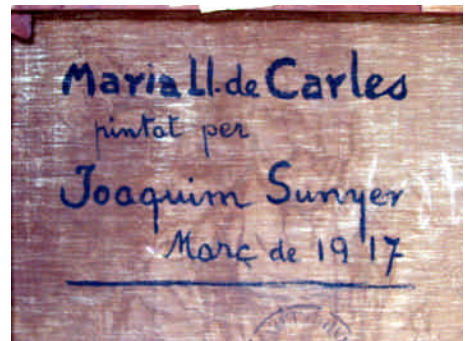 Maria Ll. de Carles
pintat per
Joaquim Sunyer
Març de 1917